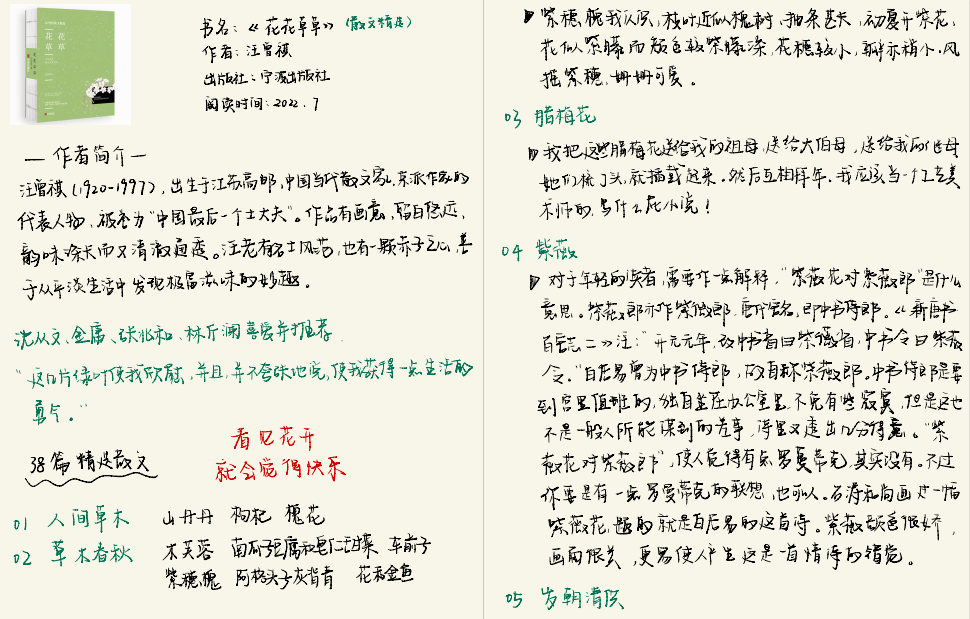 书名：《花花草草》（散文精选）
作者：汪曾祺
出版社：宁波出版社
阅读时间：2022.7
— 作者简介 —
汪曾祺（1920-1997），出生于江苏高邮，中国当代散文家，京派作家的
代表人物，被誉为“中国最后一个士大夫”。作品有画意，
韵味悠长而又清澈通透。汪老有名士风范，也有一颗赤子之心，善
于从平淡生活中发现极富滋味的妙趣。
沈从文、金庸、张兆和、林斤澜喜爱并推荐
“这几片绿叶使我欣慰，并且，并不夸张地说，使我获得一点生活的
勇气。”
看见花开
就会觉得快乐
38篇精选散文
01 人间草木 山丹丹 枸杞 槐花
02 草木春秋 木芙蓉 车前子
紫穗槐 阿格头子灰背青 花和金鱼
紫穗槐我认识，枝叶近似槐树，抽条甚长，初夏开紫花，
花似紫藤而颜色较紫藤深，花穗较小，瓣亦稍小。风
摇紫穗，姗姗可爱。
03 腊梅花
我把这些腊梅花送给我的祖母，送给大伯母，送给我的继母
她们梳了头，就插戴起来。然后互相拜年。我应该当一个工艺美
术师的，写什么屁小说！
04 紫薇
对于年轻的读者，需要作一点解释，“紫薇花对紫薇郎”是什么
意思。紫薇郎亦作紫微郎，唐代官名，即中书侍郎。《新唐书
百官志二》注：“开元元年，改中书省曰紫微省，中书令曰紫微
令。”白居易曾为中书侍郎，故自称紫薇郎。中书侍郎是要
到宫里值班的，独自坐在办公室里，不免有些寂寞，但是这也
不是一般人所能谋到的差事，诗里又透出几分得意。“紫
薇花对紫薇郎”，使人觉得有点罗曼蒂克，其实没有。不过
你要是有一点罗曼蒂克的联想，也可以。石涛和尚画过一幅
紫薇花，题的就是白居易的这首诗。紫薇颜色很娇，
画面很美，更易使人产生这是一首情诗的错觉。
05 岁朝清供